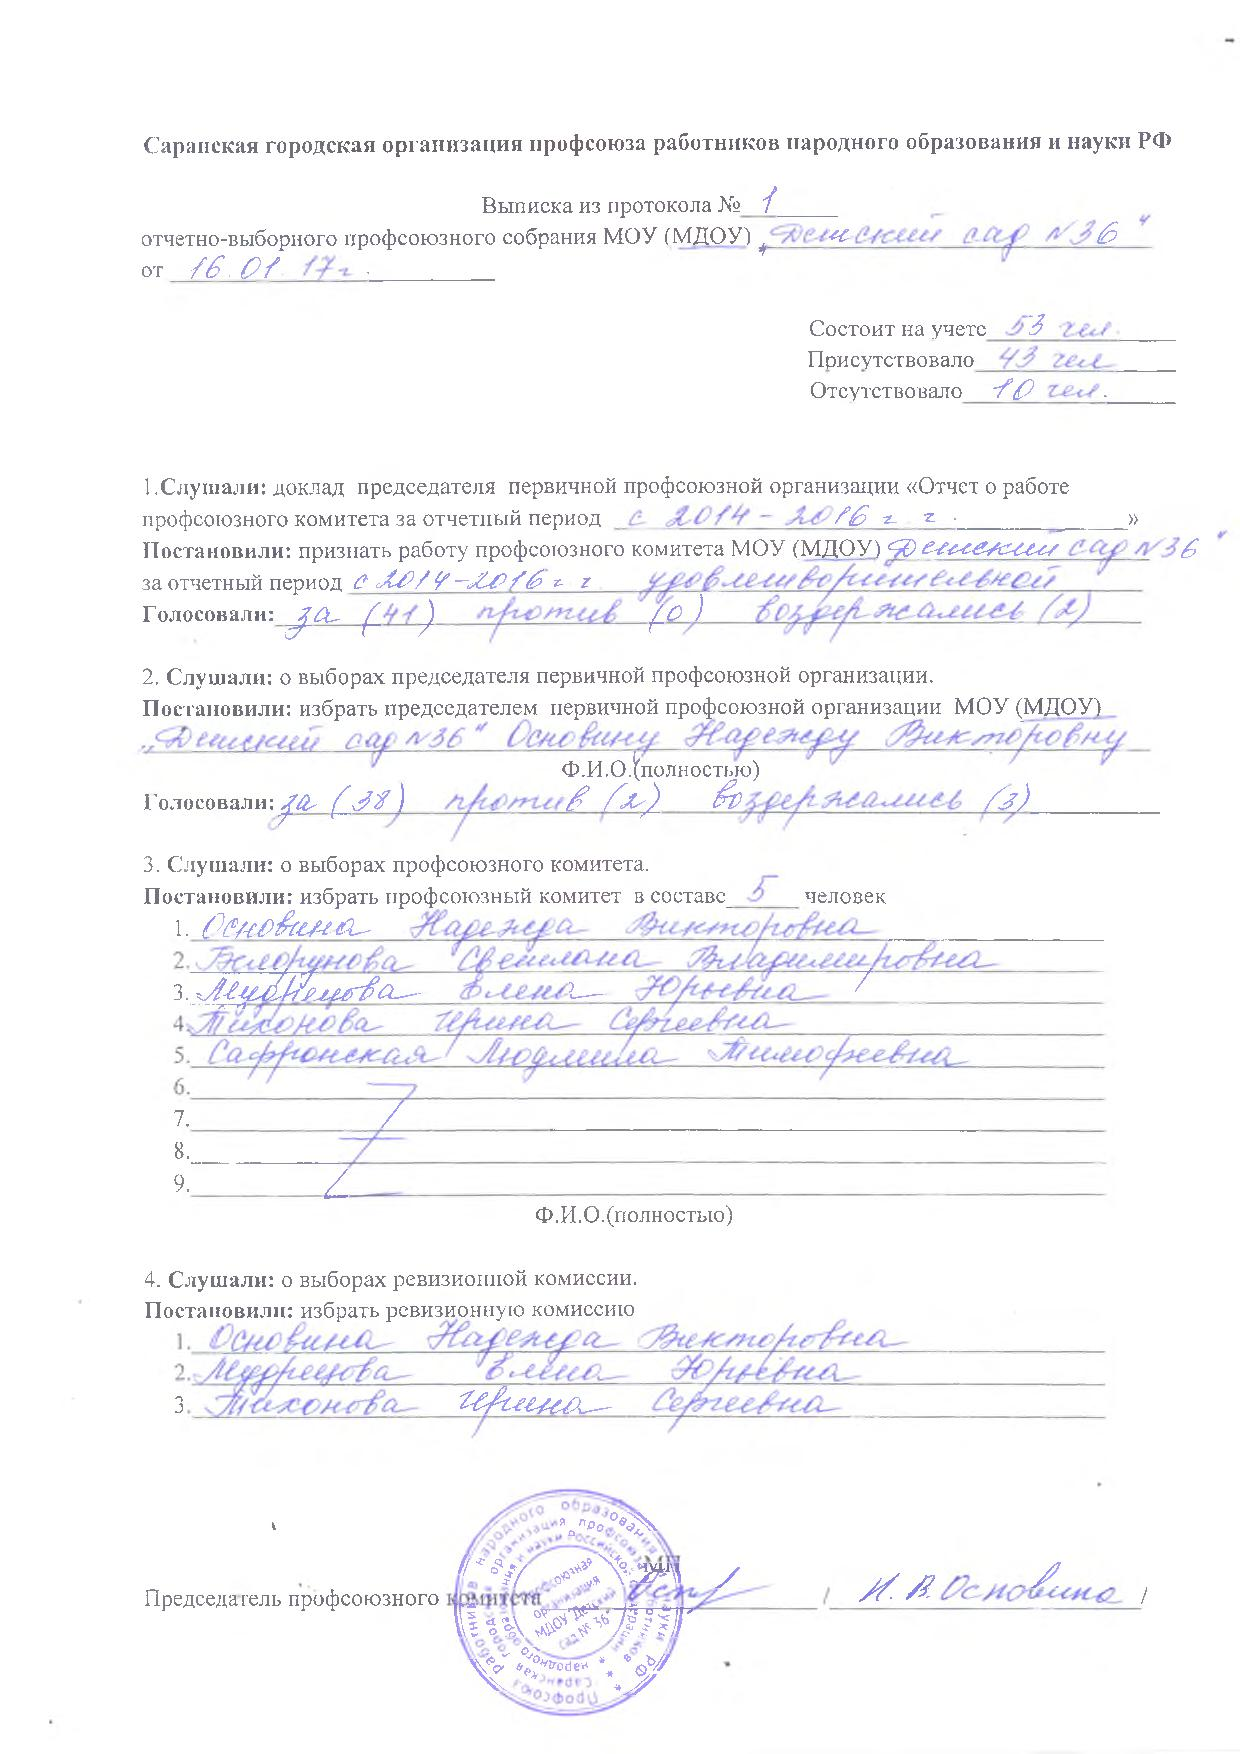 Саранская городская организация профсоюза работников народного образования и науки РФ
Выписка из протокола № 1
отчетно-выборного профсоюзного собрания МОУ (МДОУ) „Детский сад №36"
от 16.01.17г.
Состоит на учете 53 чел.
Присутствовало 43 чел
Отсутствовало 10 чел.
1.Слушали: доклад председателя первичной профсоюзной организации «Отчет о работе
профсоюзного комитета за отчетный период с 2014-2016 г г. »
Постановили: признать работу профсоюзного комитета МОУ (МДОУ) Детский сад №36"
за отчетный период с 2014-2016 г г. удовлетворительной
Голосовали: за (41) против (0) воздержались (2)
2. Слушали: о выборах председателя первичной профсоюзной организации.
Постановили: избрать председателем первичной профсоюзной организации МОУ (МДОУ)
„Детский сад №36" Основину Надежду Викторовну
Ф.И.О.(полностью)
Голосовали: за (38) против (2) воздержались (3)
3. Слушали: о выборах профсоюзного комитета.
Постановили: избрать профсоюзный комитет в составе 5 человек
1. Основина Надежда Викторовна
2. Светлана Владимировна
3. Мудрецова Елена Юрьевна
4. Тихонова Ирина Сергеевна
5. Сафронская Людмила Тимофеевна
6.
7.
8.
9.
Ф.И.О.(полностью)
4. Слушали: о выборах ревизионной комиссии.
Постановили: избрать ревизионную комиссию
1. Основина Надежда Викторовна
2. Мудрецова Елена Юрьевна
3. Тихонова Ирина Сергеевна
МП
Председатель профсоюзного комитета / И.В.Основина /